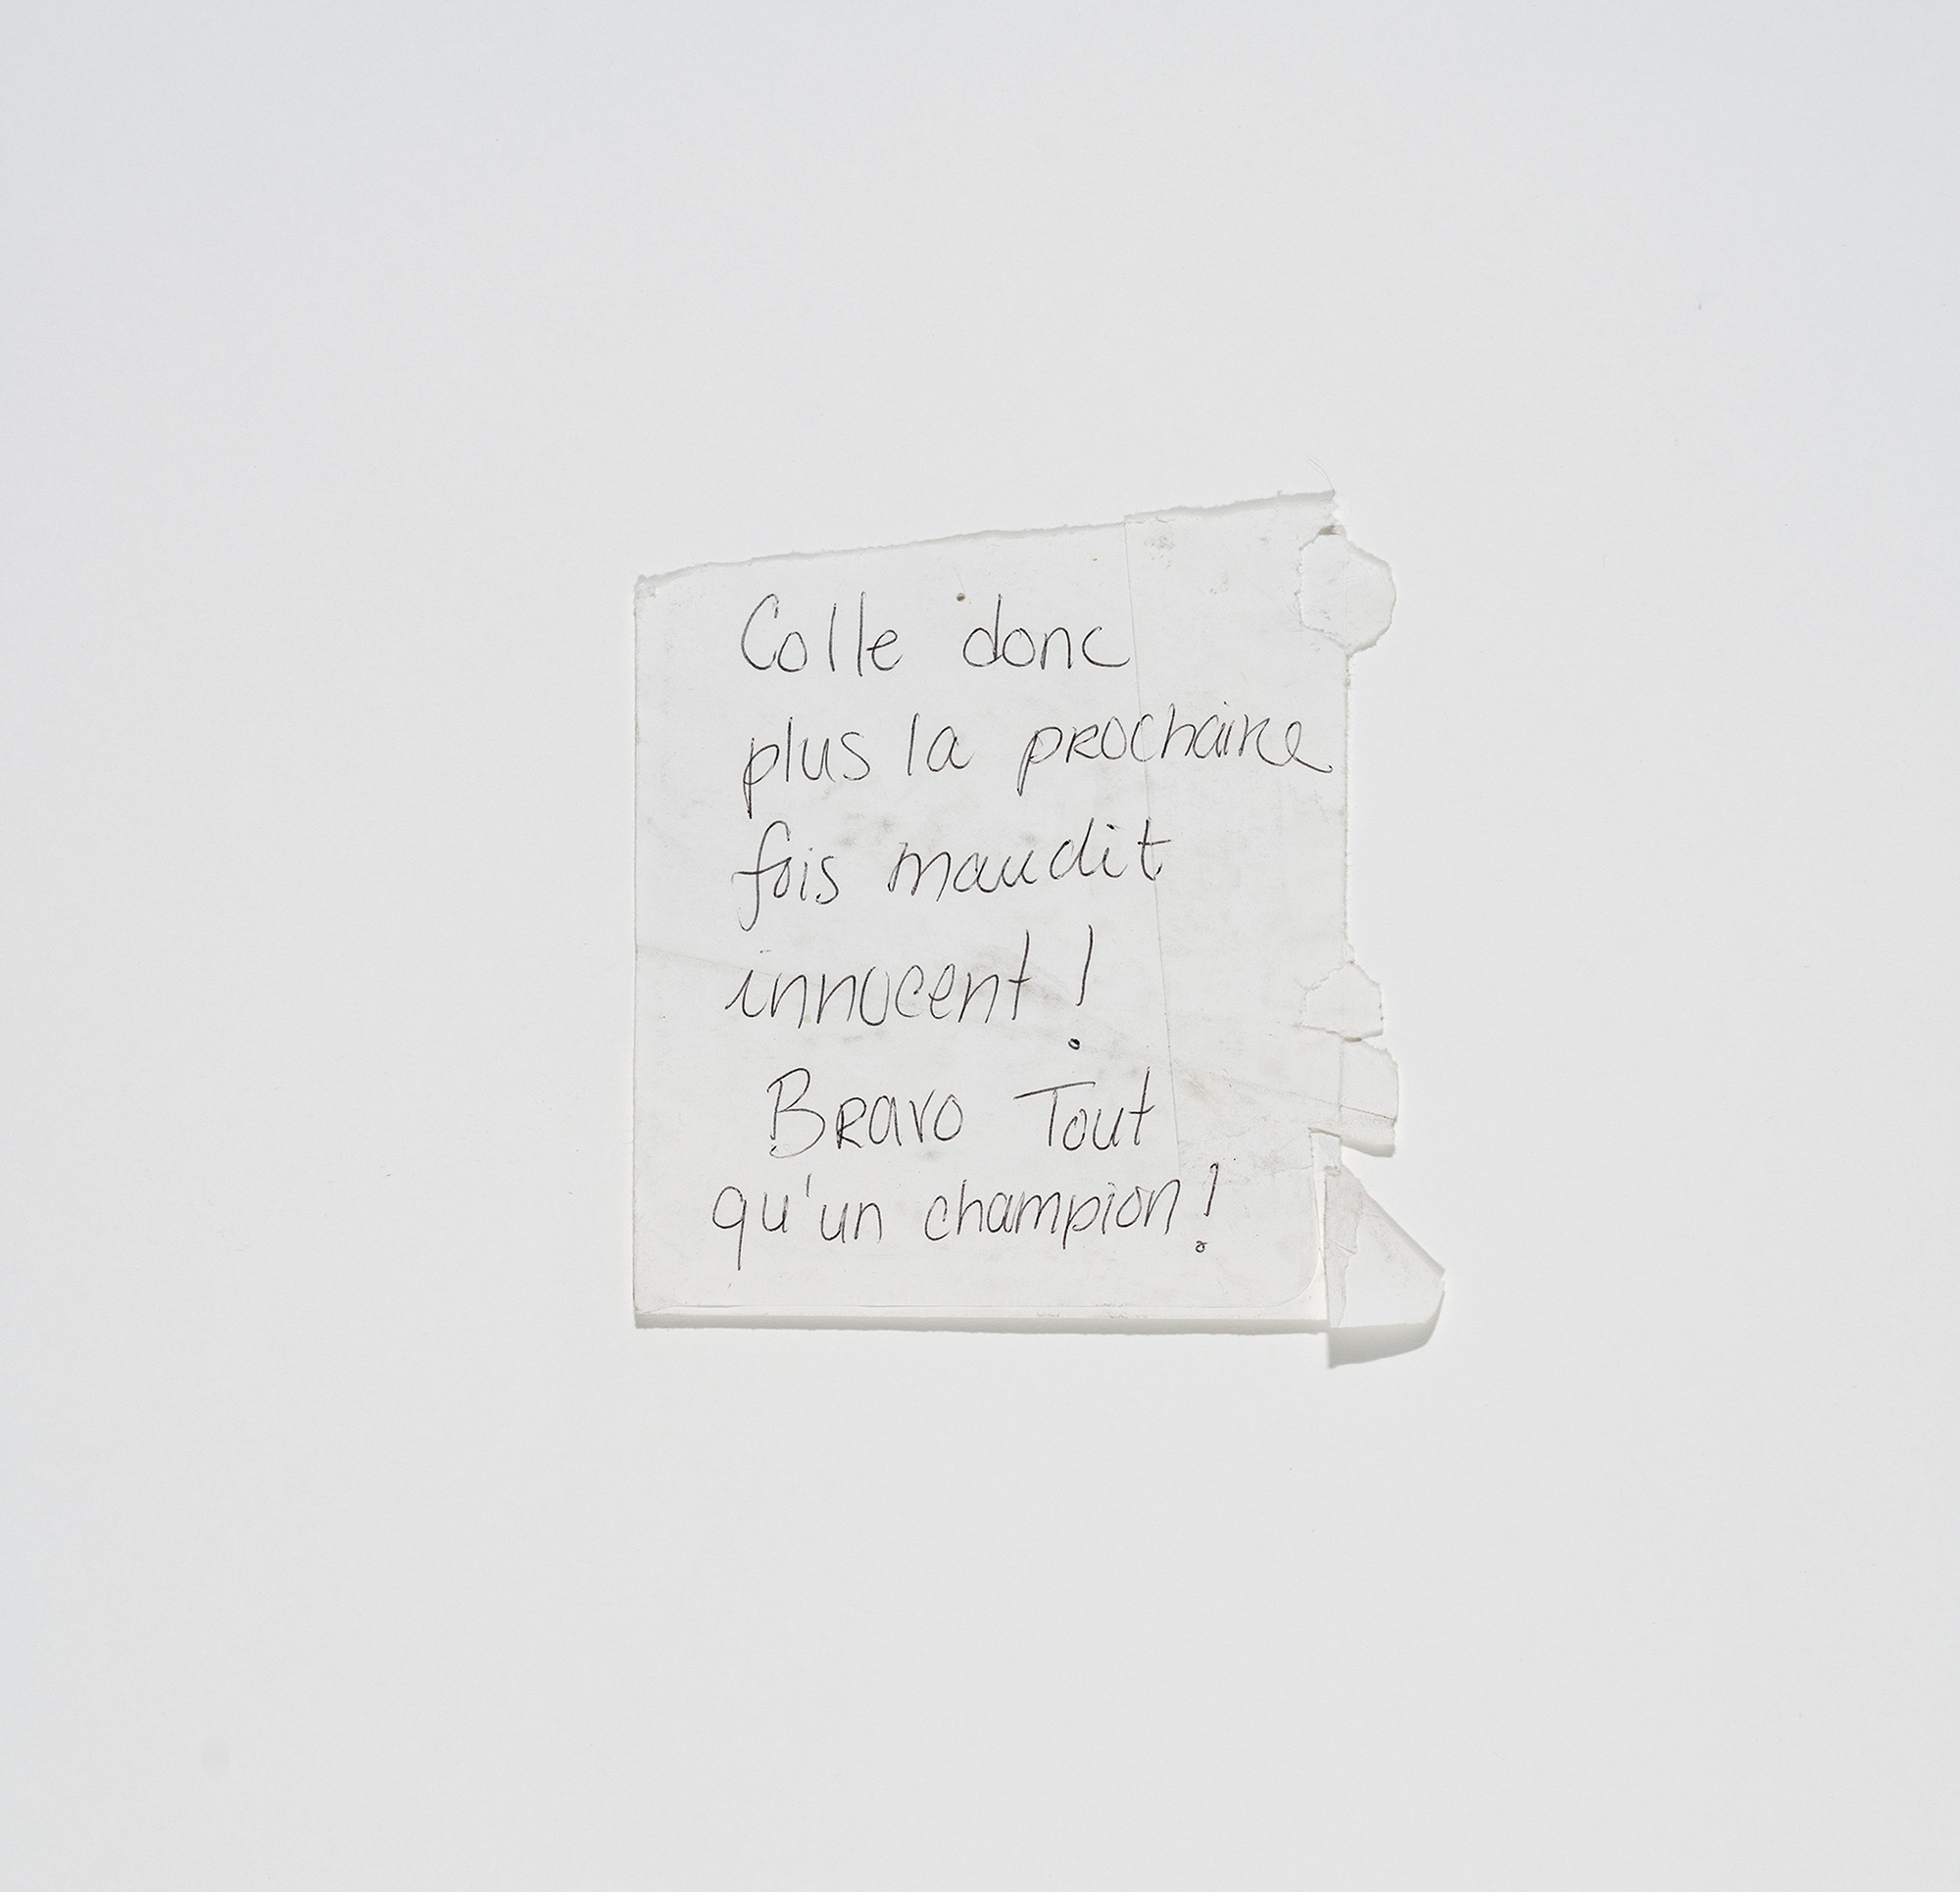 Colle donc
plus la prochaine
fois maudit
innocent !
Bravo Tout
qu'un champion !